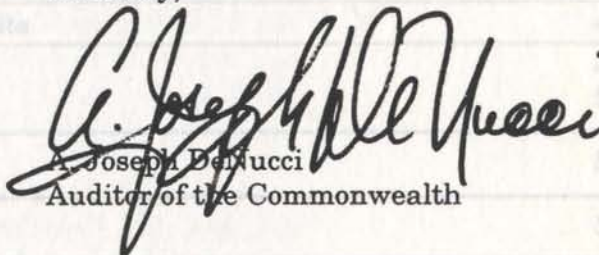 A. Joseph DeNucci
A. Joseph DeNucci
Auditor of the Commonwealth